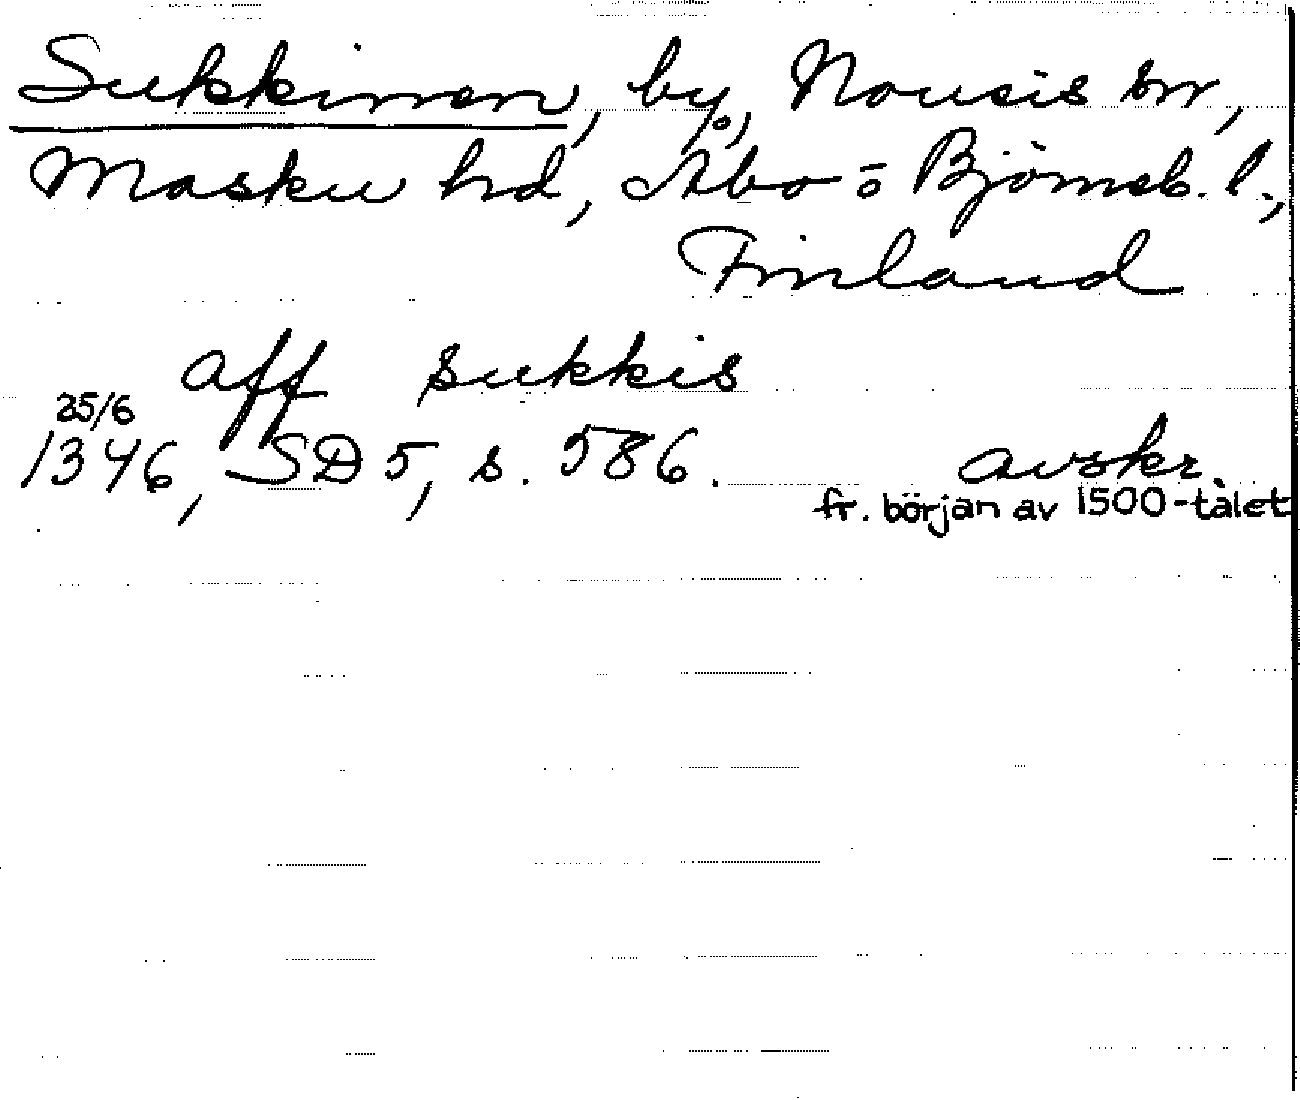 Sukkinen, by, Nousis sn,
Masku hd, Åbo = o Björneb. l.,
Finland
aff sukkis
25/6
1346, SD 5, s. 586. avskr.
fr. början av 1500-talet